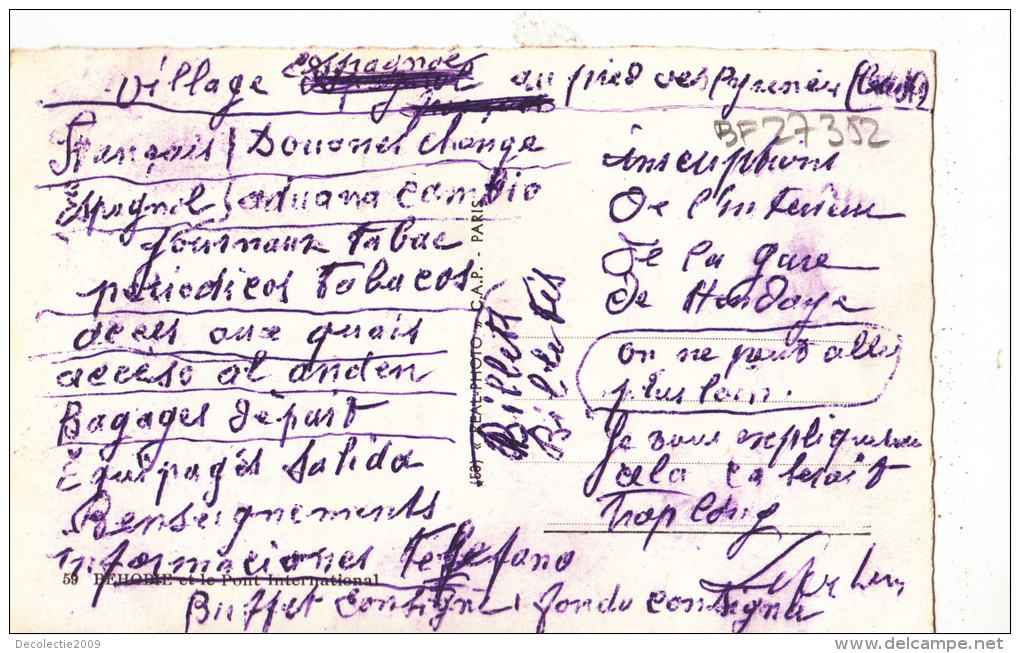 Village espagnole au pied des Pyrénées
Français Douanes change
Espagnol aduana cambio
journaux Tabac
periodicos Tabacos
accès aux quais
acceso al anden
Bagages départ
Equipages salida
Renseignements
informaciones Telefono
Buffet consigne, fonda consigna
Billets
Billetes
59 BÉHOBIE et le Pont International
(59) « RÉAL-PHOTO » C.A.P. - PARIS
BF 27352
inscriptions
de l'interieur
de la gare
de Hendaye
on ne peut aller
plus loin.
Je vous expliquerai
cela ça serait
trop long
Decolectie2009
www.delcampe.net